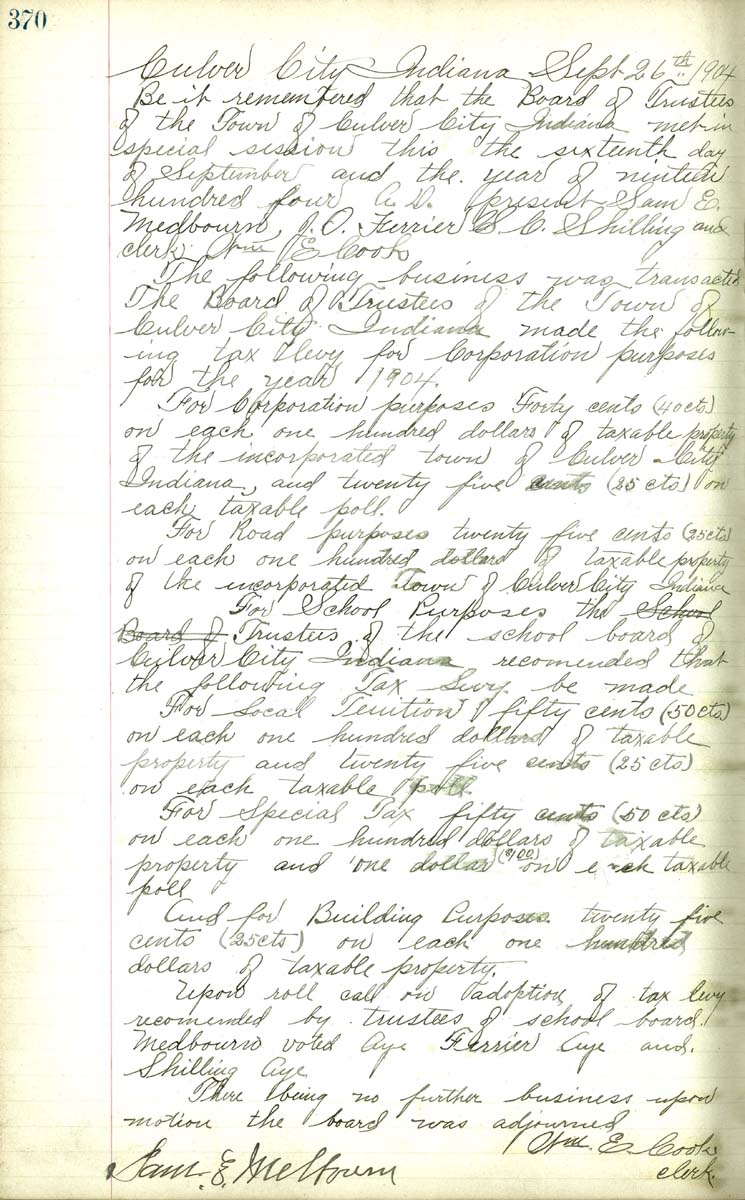 370
Culver City Indiana Sept 26th 1904
Be it remembered that the Board of Trustees
of the Town of Culver City Indiana met in
special session this the sixteenth day
of September and the year of ninteen
hundred four A.D. present Sam E.
Medbourn, J. O. Ferrier S. C. Shilling and
clerk Wm E Cook
The following business was transacted
The Board of Trustees of the Town of
Culver City Indiana made the follow-
ing tax levy for Corporation purposes
for the year 1904.
For Corporation purposes Forty cents (40cts)
on each one hundred dollars of taxable property
of the incorporated town of Culver City
Indiana, and twenty five cents (25 cts) on
each taxable poll.
For Road purposes twenty five cents (25cts)
on each one hundred dollars of taxable property
of the incorporated Town of Culver City Indiana
For School Purposes the School
Board of Trustees of the school board of
Culver City Indiana recomended that
the following Tax Levy be made
For Local Tenition fifty cents (50cts)
on each one hundred dollars of taxable
property and twenty five cents (25 cts)
on each taxable poll.
For Special Tax fifty cents (50 cts)
on each one hundred dollars of taxable
property and one dollar ($1.00) on each taxable
poll
And for Building Purposes twenty five
cents (25cts) on each one hundred
dollars of taxable property.
Upon roll call on adoption of tax levy
recomended by trustees of school board.
Medbourn voted Aye Ferrier Aye and.
Shilling Aye.
There being no further business upon
motion the board was adjourned
Wm. E. Cook
clerk.
Sam. E. Medbourn